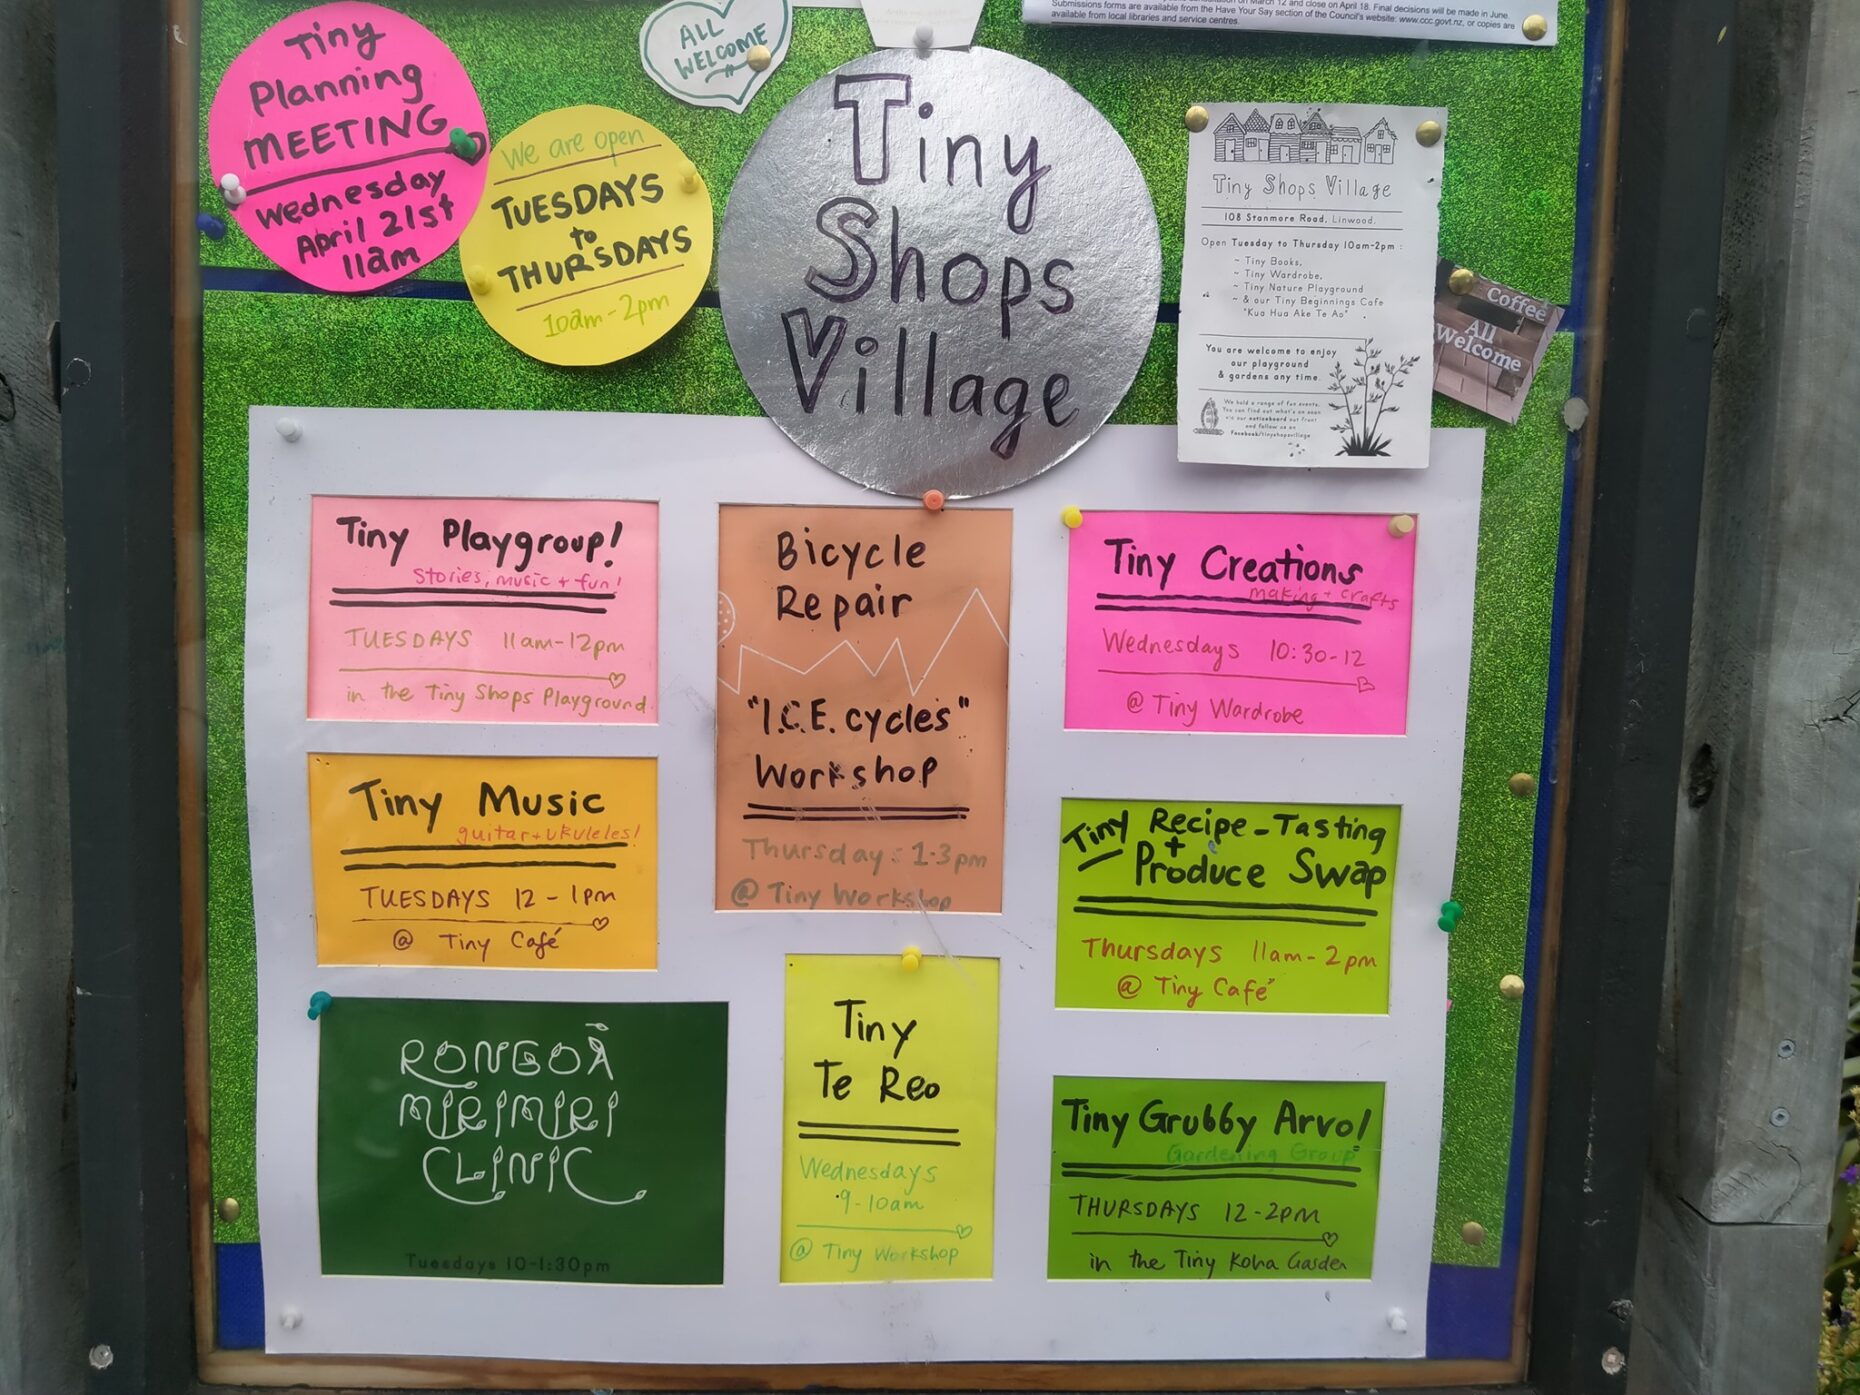 Submissions forms are available from the Have Your Say section of the Council's website: www.ccc.govt.nz, or copies are
available from local libraries and service centres.
Tiny
Planning
MEETING
Wednesday
April 21st
11am
ALL
WELCOME
We are open
TUESDAYS
to
THURSDAYS
10am-2pm
Tiny
Shops
Village
Tiny Shops Village
108 Stanmore Road, Linwood.
Open Tuesday to Thursday 10am-2pm :
~ Tiny Books,
~ Tiny Wardrobe,
~ Tiny Nature Playground
~ & our Tiny Beginnings Cafe
"Kua Hua Ake Te Ao"
You are welcome to enjoy
our playground
& gardens any time.
We hold a range of fun events.
You can find out what's on soon
via our noticeboard out front
and follow us on
Facebook/tinyshopsvillage
Coffee
All
Welcome
Tiny Playgroup!
Stories, music + fun!
TUESDAYS 11am-12pm
in the Tiny Shops Playground.
Bicycle
Repair
"I.C.E. cycles"
Workshop
Thursdays 1-3pm
@ Tiny Workshop
Tiny Creations
making + crafts
Wednesdays 10:30-12
@ Tiny Wardrobe
Tiny Music
guitar + ukuleles!
TUESDAYS 12 - 1pm
@ Tiny Café
Tiny Recipe-Tasting
+
Produce Swap
Thursdays 11am-2pm
@ Tiny Café
RONGOĀ
MIRIMIRI
CLINIC
Tuesdays 10-1:30pm
Tiny
Te Reo
Wednesdays
9-10am
@ Tiny Workshop
Tiny Grubby Arvo!
Gardening Group
THURSDAYS 12-2PM
in the Tiny Koha Garden